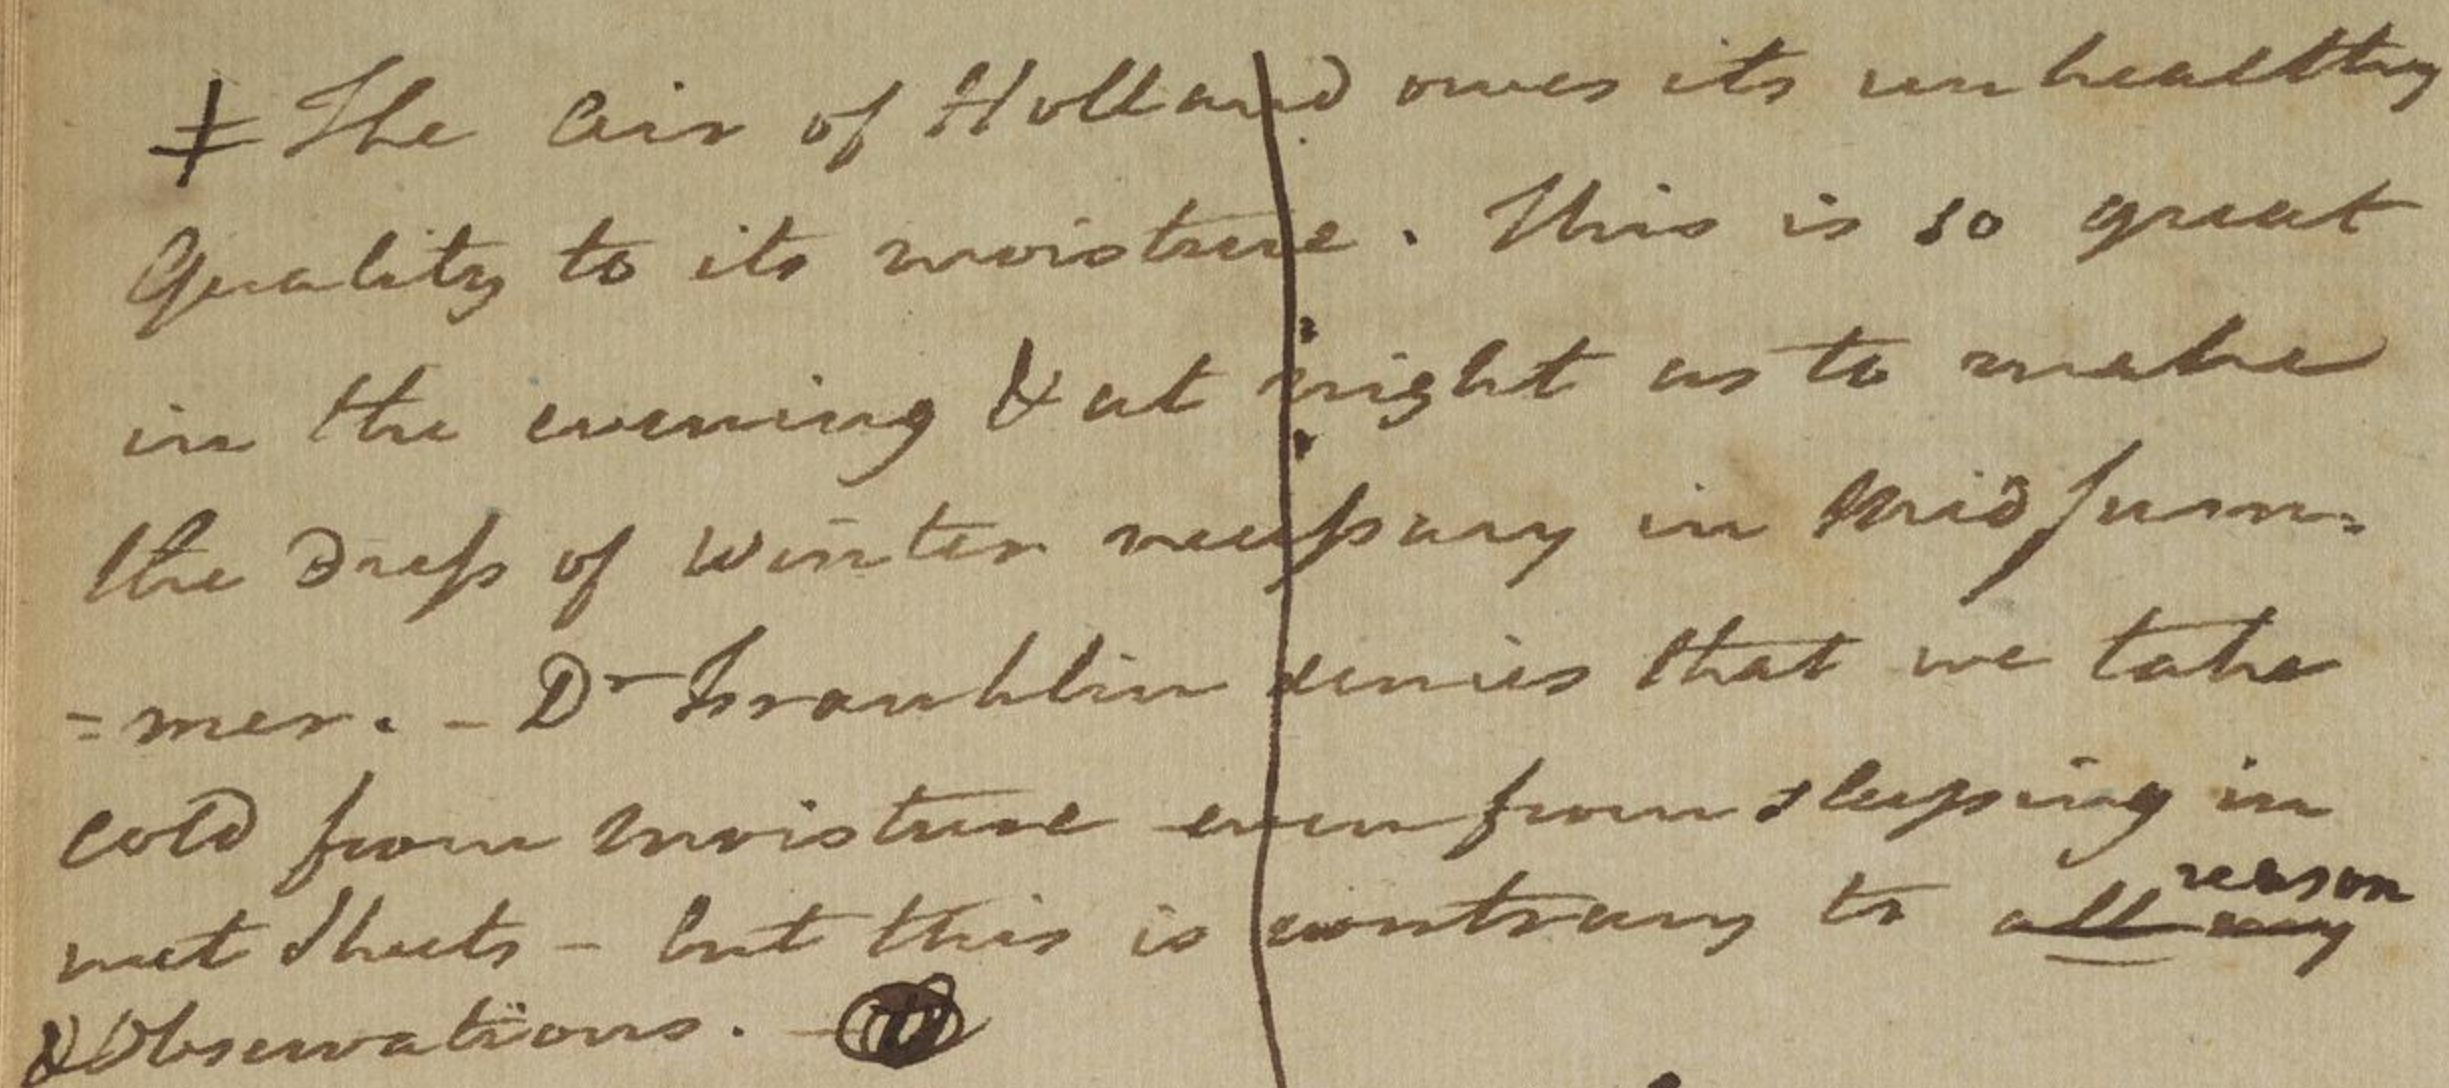 ‡ The Air of Holland owes its unhealthy
Quality to its moisture. This is so great
in the evening & at night as to make
the Dress of Winter necessary in Midsum=
=mer. - Dr Franklin denies that we take
cold from moisture even from sleeping in
wet Sheets - but this is contrary to all my reason
& Observations.